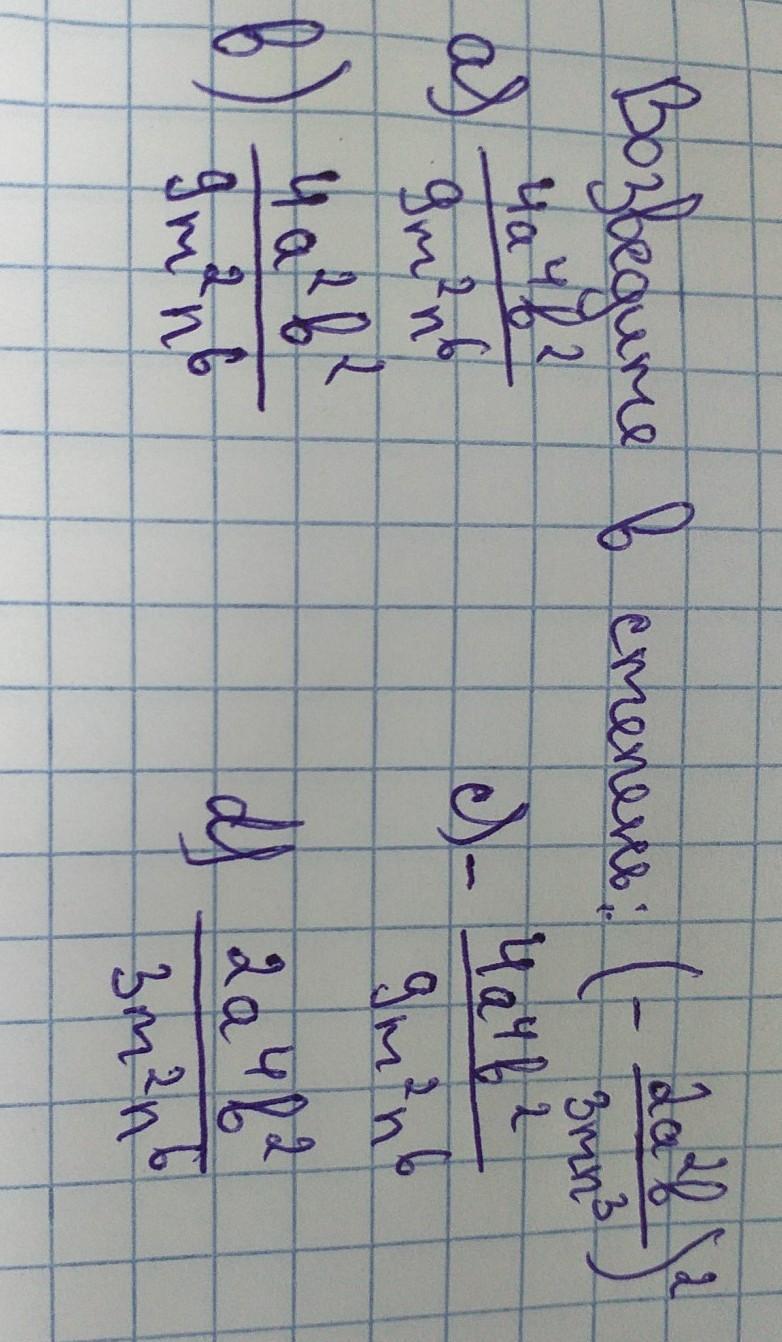 Возведите в степень: (- 2a²b / 3mn³)²
a) 4a⁴b² / 9m²n⁶ c) - 4a⁴b² / 9m²n⁶
b) 4a²b² / 9m²n⁶ d) 2a⁴b² / 3m²n⁶